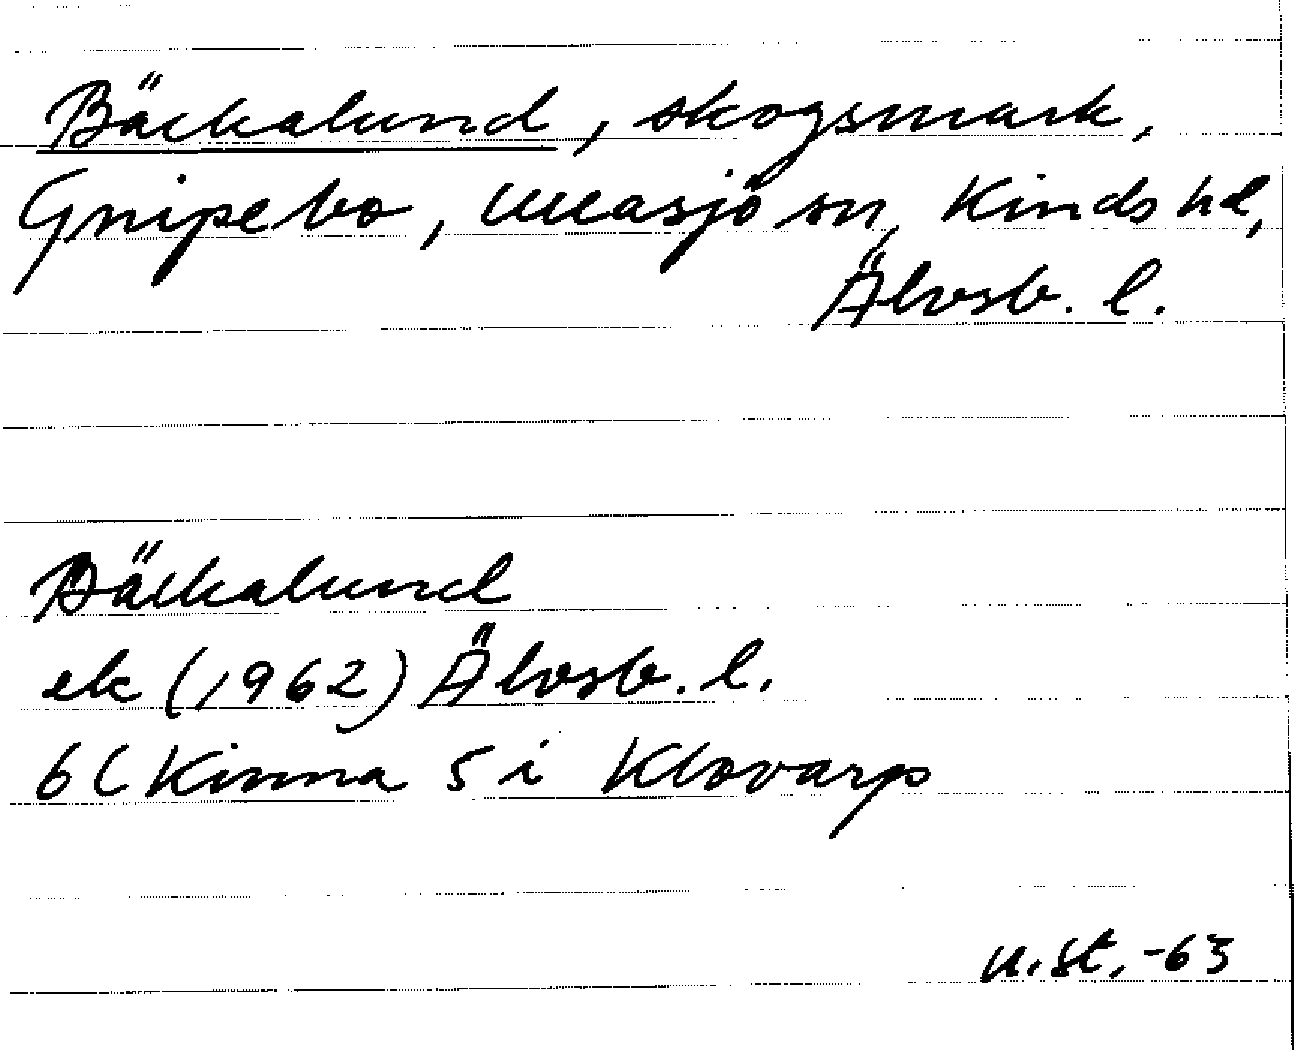 Bäckalund, skogsmark,
Gnipebo, Ullasjö sn, Kinds hd,
Älvsb. l.
Bäckalund
ek (1962) Älvsb. l.
6C Kinna 5 i Klovarp
u. st, -63